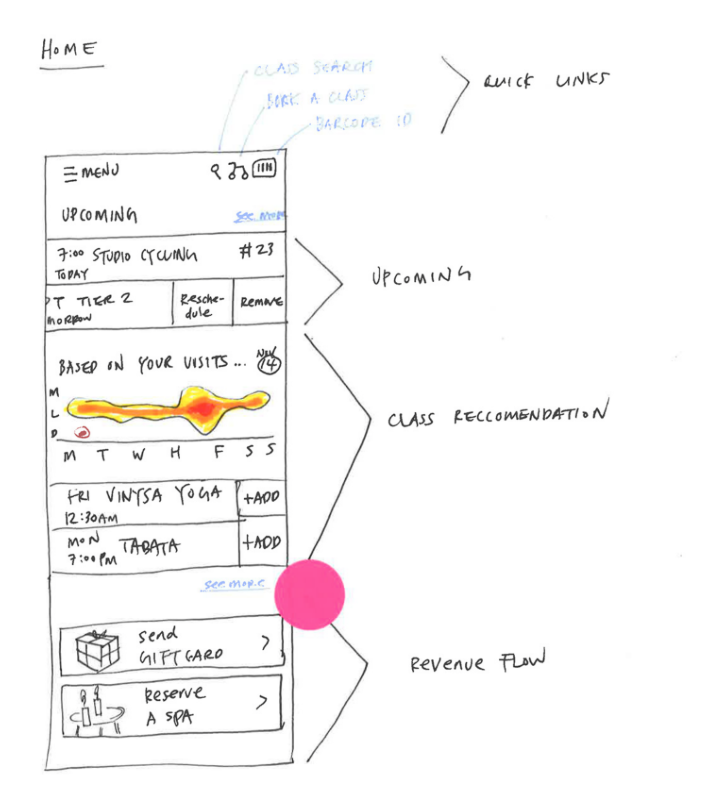 HOME
CLASS SEARCH
BOOK A CLASS
BARCODE ID
QUICK LINKS
MENU
UPCOMING
see more
7:00 STUDIO CYCLING #23
TODAY
UPCOMING
PT TIER 2
MORROW
Resche-
dule
Remove
BASED ON YOUR VISITS ... 14
M
L
D
M T W H F S S
CLASS RECCOMENDATION
FRI VINYSA YOGA +ADD
12:30AM
MON TABATA +ADD
7:00PM
see more
send
GIFT CARD >
Revenue FLOW
Reserve
A SPA >